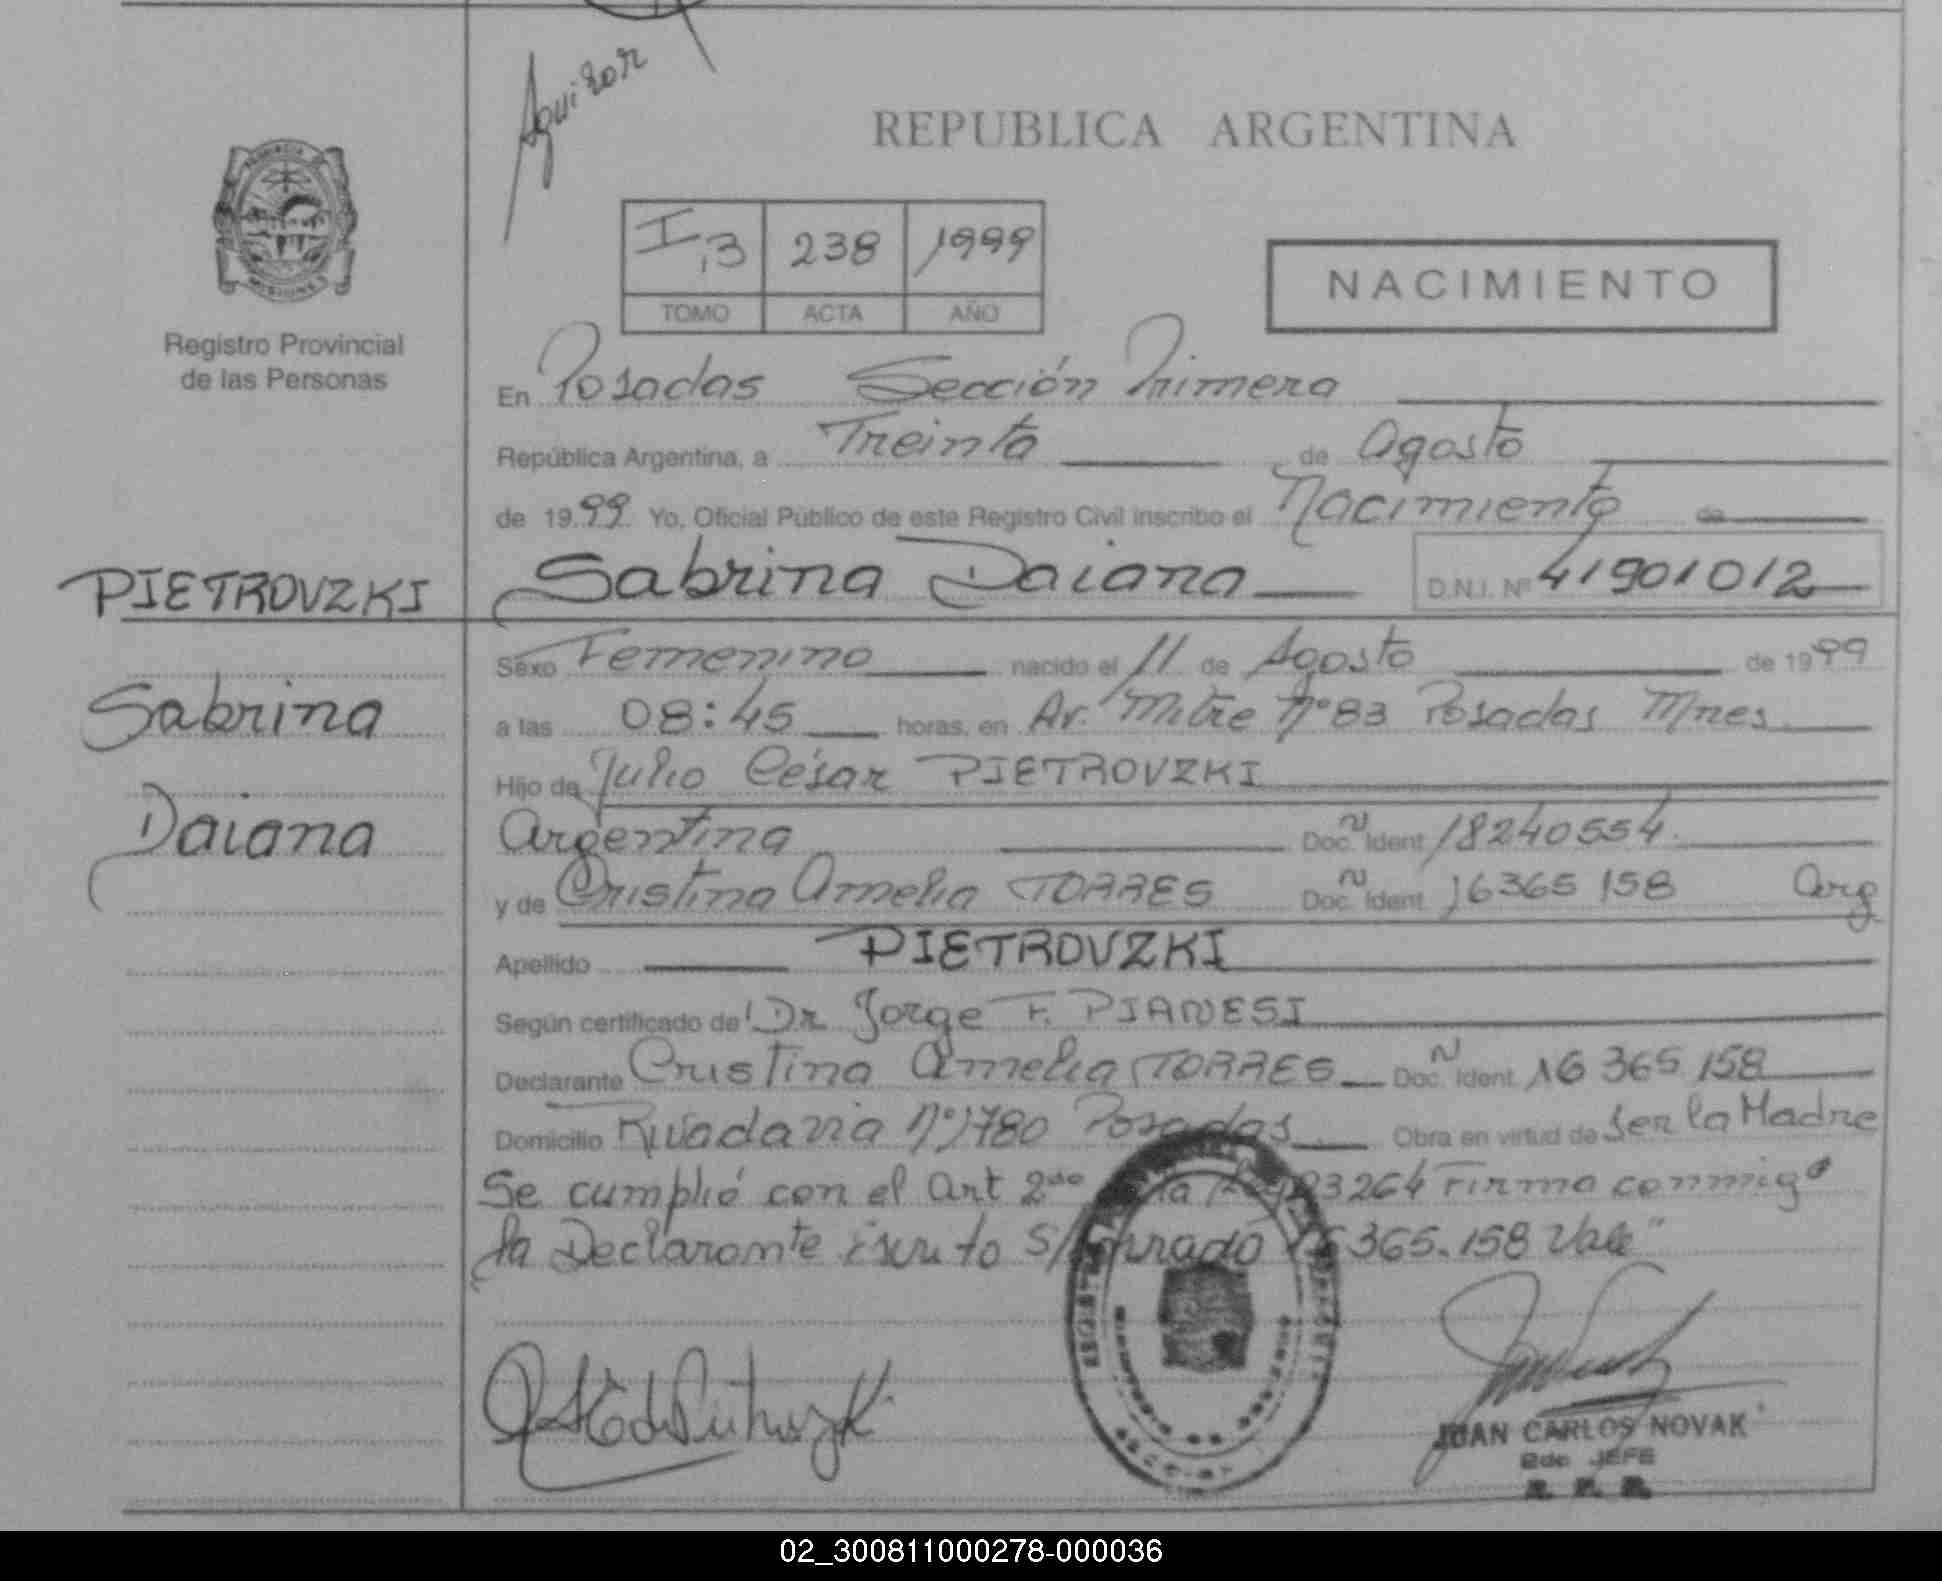 Aguilar
REPUBLICA ARGENTINA
PROVINCIA
MISIONES
I,3 238 1999
TOMO ACTA AÑO
NACIMIENTO
Registro Provincial
de las Personas
En Posadas Sección Primera
República Argentina, a Treinta de Agosto
de 1999 Yo, Oficial Público de este Registro Civil inscribo el Nacimiento de
PIETROVZKI
Sabrina
Daiana
Sabrina Daiana D.N.I. Nº 41901012
Sexo Femenino nacido el 11 de Agosto de 1999
a las 08:45 horas, en Av. Mitre Nº 83 Posadas Mnes
Hijo de Julio César PIETROVZKI
Argentina Doc. Ident 18240554
y de Cristina Amelia TORRES Doc. Ident 16365158 Arg
Apellido PIETROVZKI
Según certificado de Dr Jorge F. PIANESI
Declarante Cristina Amelia TORRES Doc. Ident 16 365 158
Domicilio Rivadavia Nº 1780 Posadas Obra en virtud de ser la Madre
Se cumplió con el Art 2do la 23264 Firma conmigo
la Declarante escrito S/ 365.158 Vale"
JUAN CARLOS NOVAK
2do JEFE
R. P. P.
02_300811000278-000036